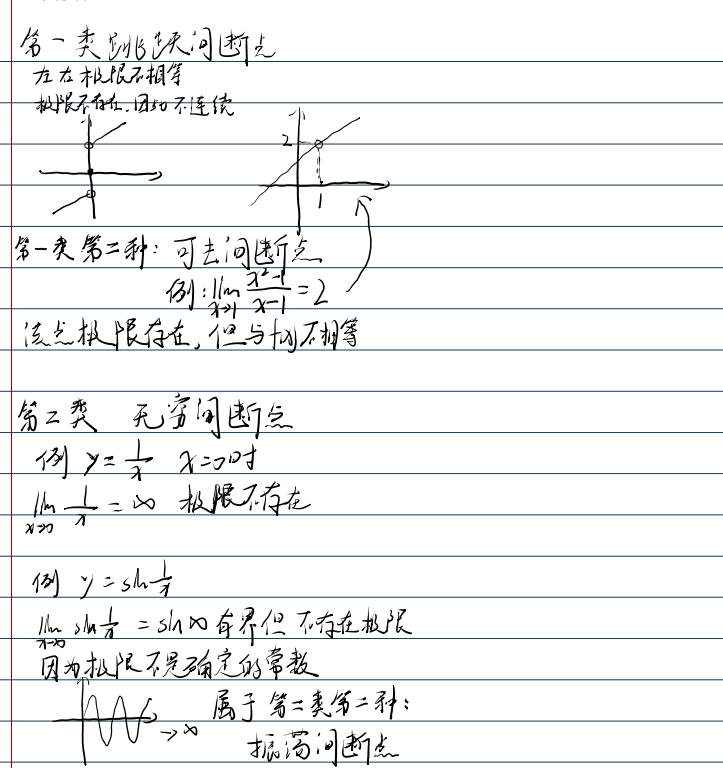 第一类 跳跃间断点
左右极限不相等
极限不存在.因为不连续
2
1
第一类 第二种: 可去间断点
例: lim x→1 x²-1/x-1 = 2
该点极限存在, 但与f(x)不相等
第二类 无穷间断点
例 y = 1/x x=0时
lim x→0 1/x = ∞ 极限不存在
例 y = sin 1/x
lim x→0 sin 1/x = sin∞ 有界但 不存在极限
因为极限不是确定的常数
属于 第二类第二种:
→∞
振荡间断点